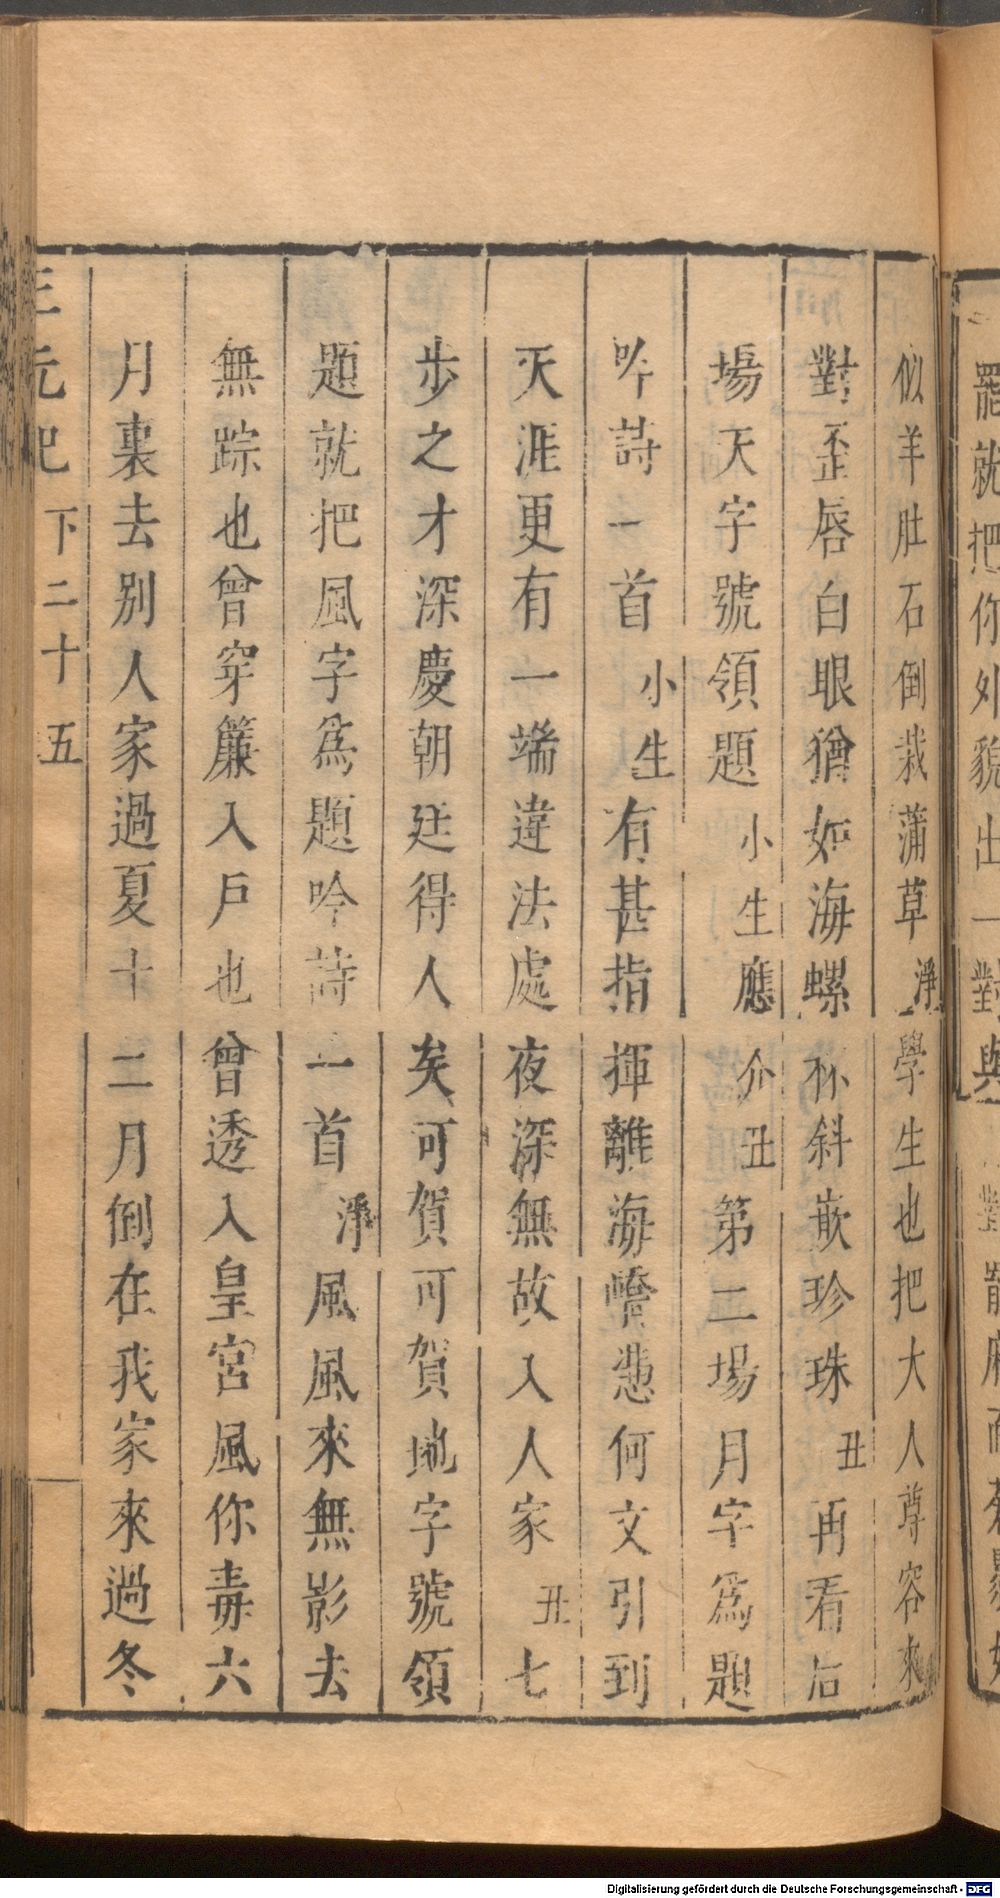 罷就把你外貌出一對與
似羊肚石倒栽蒲草淨學生也把大人尊容來
對歪唇白眼猶如海螺杯斜嵌珍珠丑再看后
場天字號領題小生應介丑第二場月字為題
吟詩一首小生有甚指揮離海嶠慿何文引到
天涯更有一端違法處夜深無故入人家丑七
步之才深慶朝廷得人矣可賀可賀地字號領
題就把風字為題吟詩一首淨風風來無影去
無踪也曾穿簾入戶也曾透入皇宮風你毒六
月裏去別人家過夏十二月倒在我家來過冬
三元記 下二十五
Digitalisierung gefördert durch die Deutsche Forschungsgemeinschaft - DFG